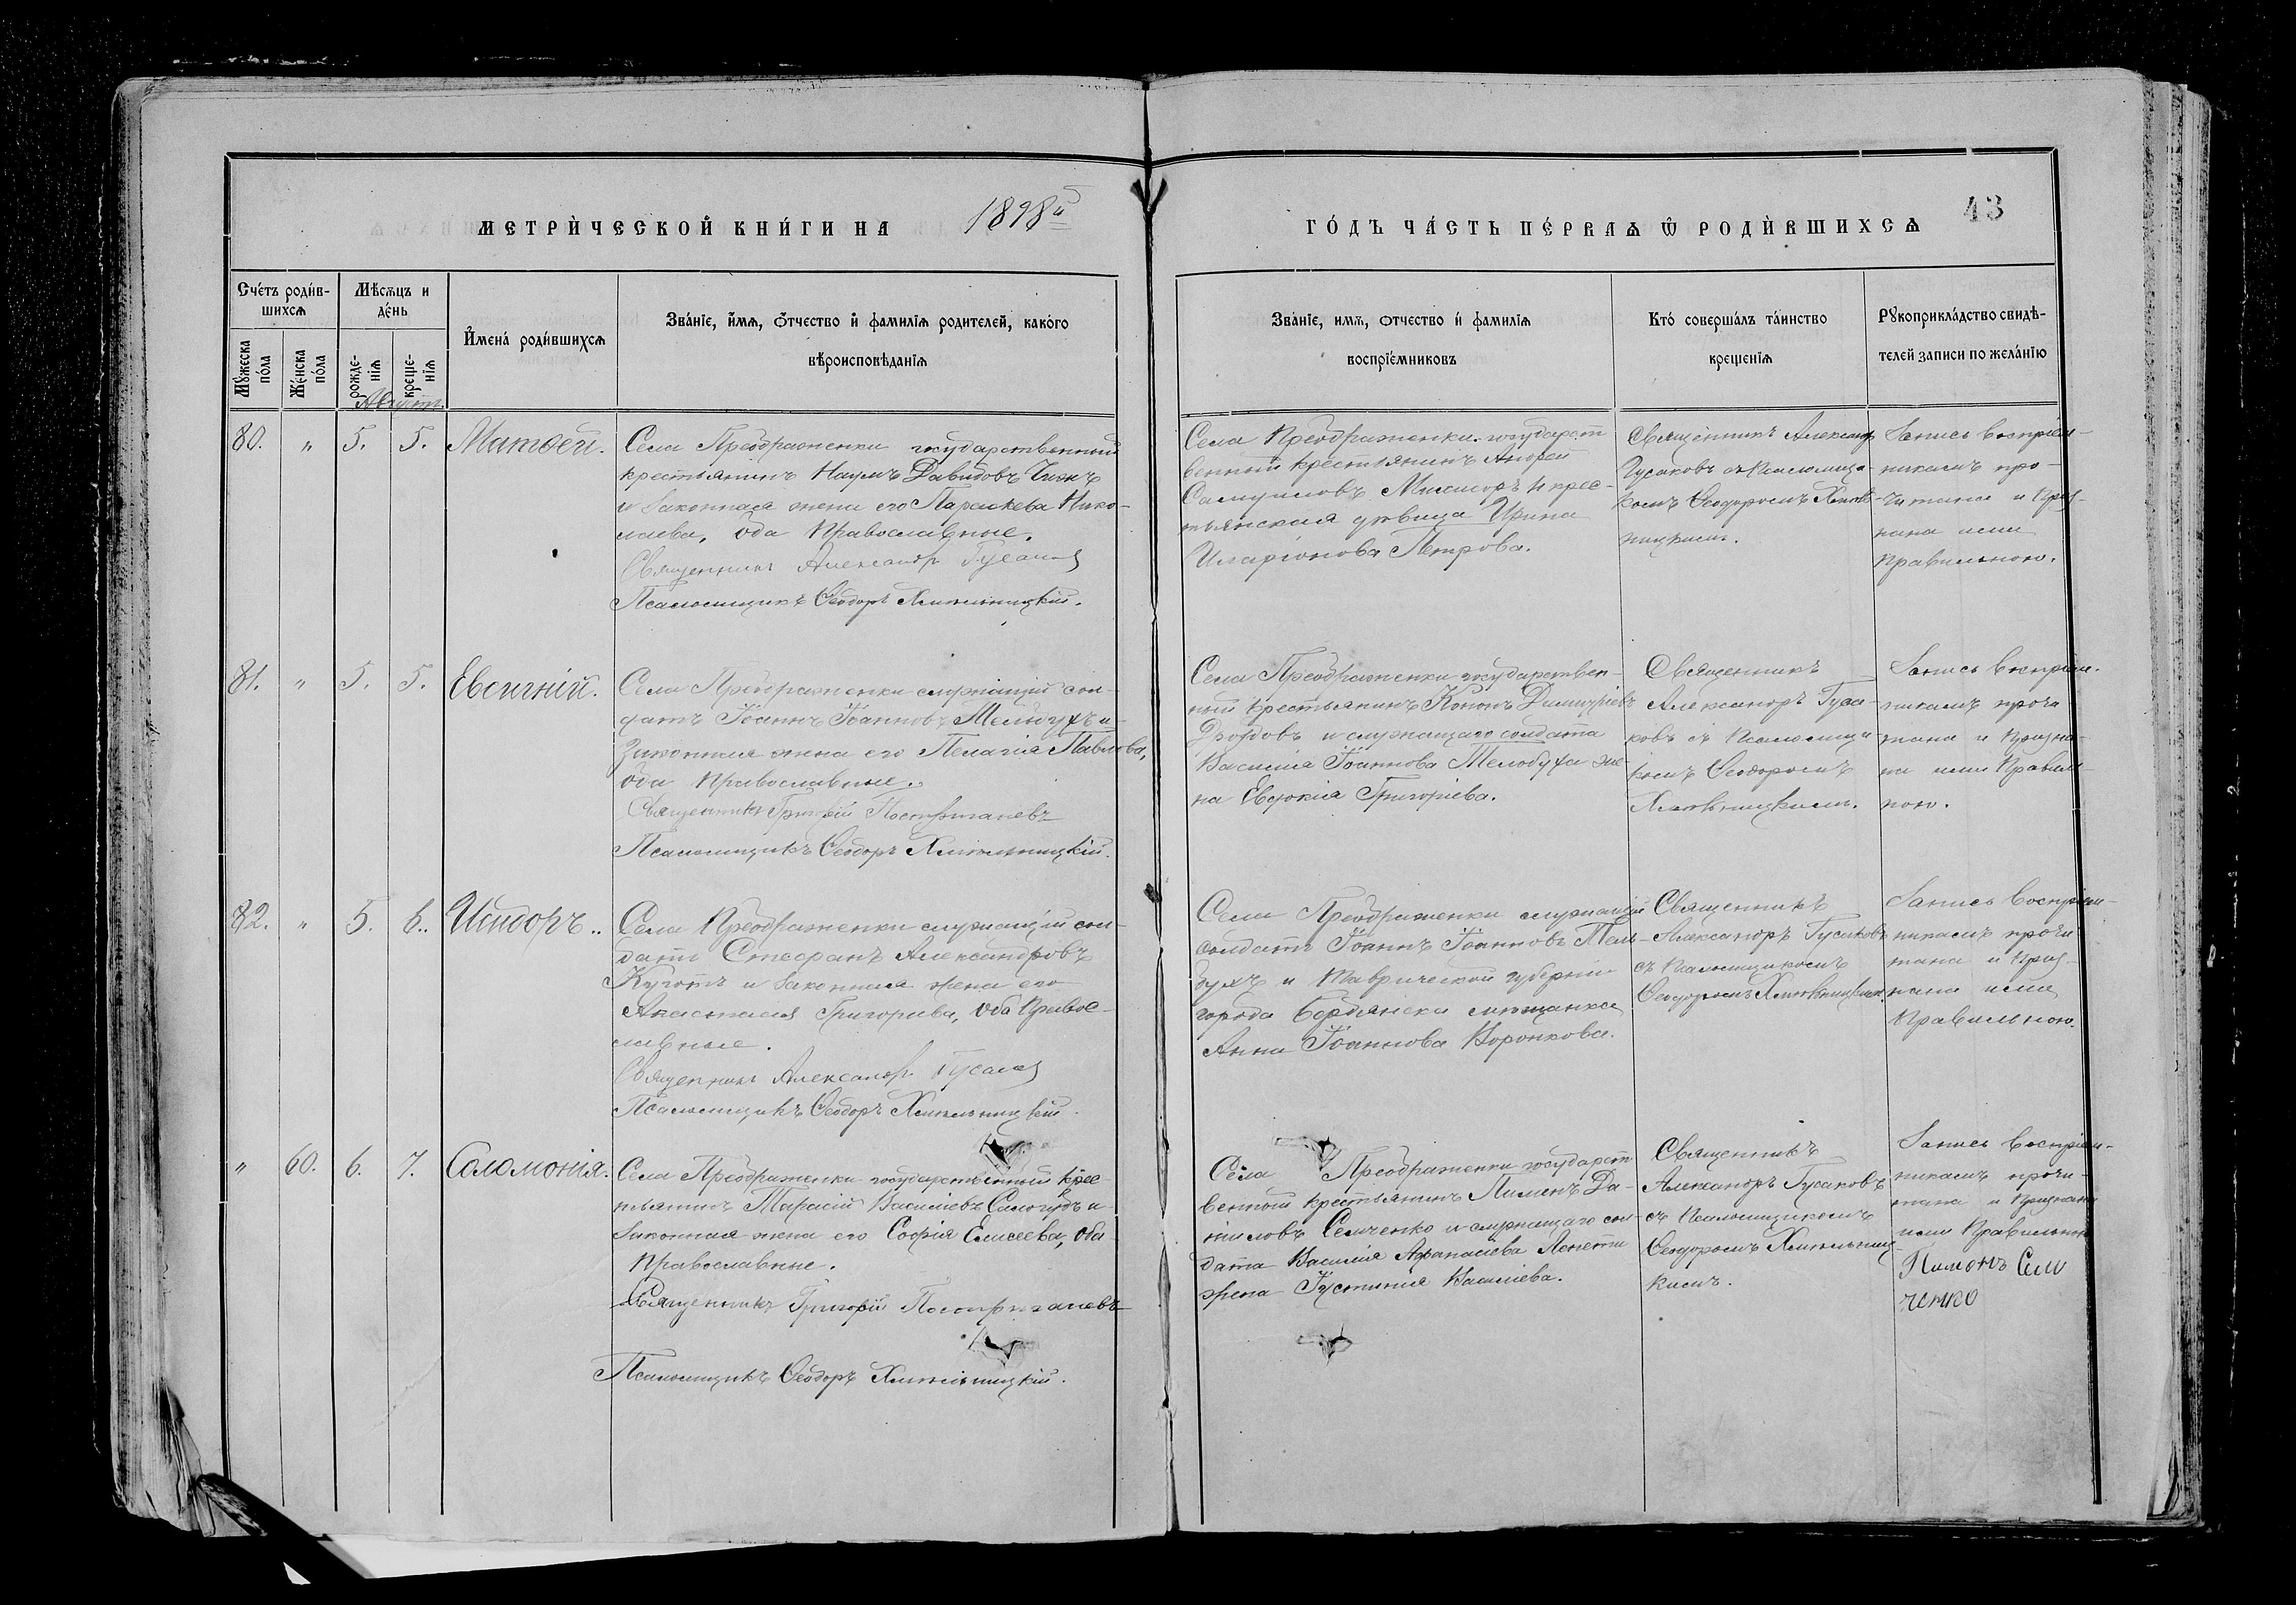 МЕТРИЧЕСКОЙ КНИГИ НА 1898й
ГОДЪ ЧАСТЬ ПЕРВАЯ Ѿ РОДИВШИХСѦ
43
Счетъ родив-
шихсѧ
Мѣсѧцъ и
день
Имена родившихсѧ
Званіе, имѧ, отчество и фамиліѧ родителей, какого
вѣроисповѣданіѧ
Званіе, имѧ, отчество и фамиліѧ
воспріемниковъ
Кто совершалъ таинство
крещеніѧ
Рꙋкоприкладство свидѣ-
телей записи по желанію
Мꙋжеска
пола
Женска
пола
рожде-
ніѧ
креще-
ніѧ
Августъ.
80. " 5. 5. Матѳей.
Села Преображенки государственный
крестьянинъ Наумъ Давидовъ
и законная жена его Параскева Нико-
лаева, оба Православные.
Священникъ Александръ Гусаковъ
Псаломщикъ Ѳеодоръ Хмельницкій.
Села Преображенки государст
венный крестьянинъ Андрей
Самуиловъ и крес-
тьянская дѣвица Ирина
Иларіонова Петрова.
Священникъ Александр
Гусаковъ съ Псаломщи-
комъ Ѳеодоромъ Хмель-
ницкимъ.
Запись воспріем-
никамъ про-
читана и приз-
нана ими
правильною.
81. " 5. 5. Евсигній.
Села Преображенки служащій сол-
датъ Іоаннъ Іоанновъ Мельбухъ и
законная жена его Пелагія Павлова,
оба Православные.
Священникъ Григорій
Псаломщикъ Ѳеодоръ Хмельницкій.
Села Преображенки государствен-
ный крестьянинъ Кононъ Димитріевъ
Дроздовъ и служащаго солдата
Василія Іоаннова Мелобуха же-
на Евдокія Григоріева.
Священникъ
Александръ Гуса-
ковъ съ Псаломщи
комъ Ѳеодоромъ
Хмельницкимъ.
Запись воспріем-
никамъ прочи
тана и призна-
на ими Правиль-
ною.
82. " 5. 6.. Исидоръ..
Села Преображенки служащій сол-
датъ Стефанъ Александровъ
и законная жена его
Анастасія Григорьева, оба Правос-
лавные.
Священникъ Александръ Гусаковъ
Псаломщикъ Ѳеодоръ Хмельницкій.
Села Преображенки служащій
солдатъ Іоаннъ Іоанновъ Мел-
бухъ и Таврической губерніи
города Бердянска мѣщанка
Анна Іоаннова Воронкова.
Священникъ
Александръ Гусаковъ
съ Псаломщикомъ
Ѳеодоромъ Хмельницким
Запись воспріем-
никамъ прочи
тана и приз-
нана ими
Правильною.
" 60. 6. 7. Саломонія.
Села Преображенки государственный крес-
тьянинъ Тарасій Василіевъ и
законная жена его Софія Елисеева, оба
Православные.
Священникъ Григорій
Псаломщикъ Ѳеодоръ Хмельницкій.
Села Преображенки государст
венный крестьянинъ Пименъ Да-
ниловъ Семченко и служащаго сол-
дата Василія Афанасіева
жена Іустинія Василіева.
Священникъ
Александръ Гусаковъ
съ Псаломщикомъ
Ѳеодоромъ Хмельниц-
кимъ.
Запись воспріем-
никамъ прочи-
тана и признана
ими Правильно
Пимонъ Сем
ченко